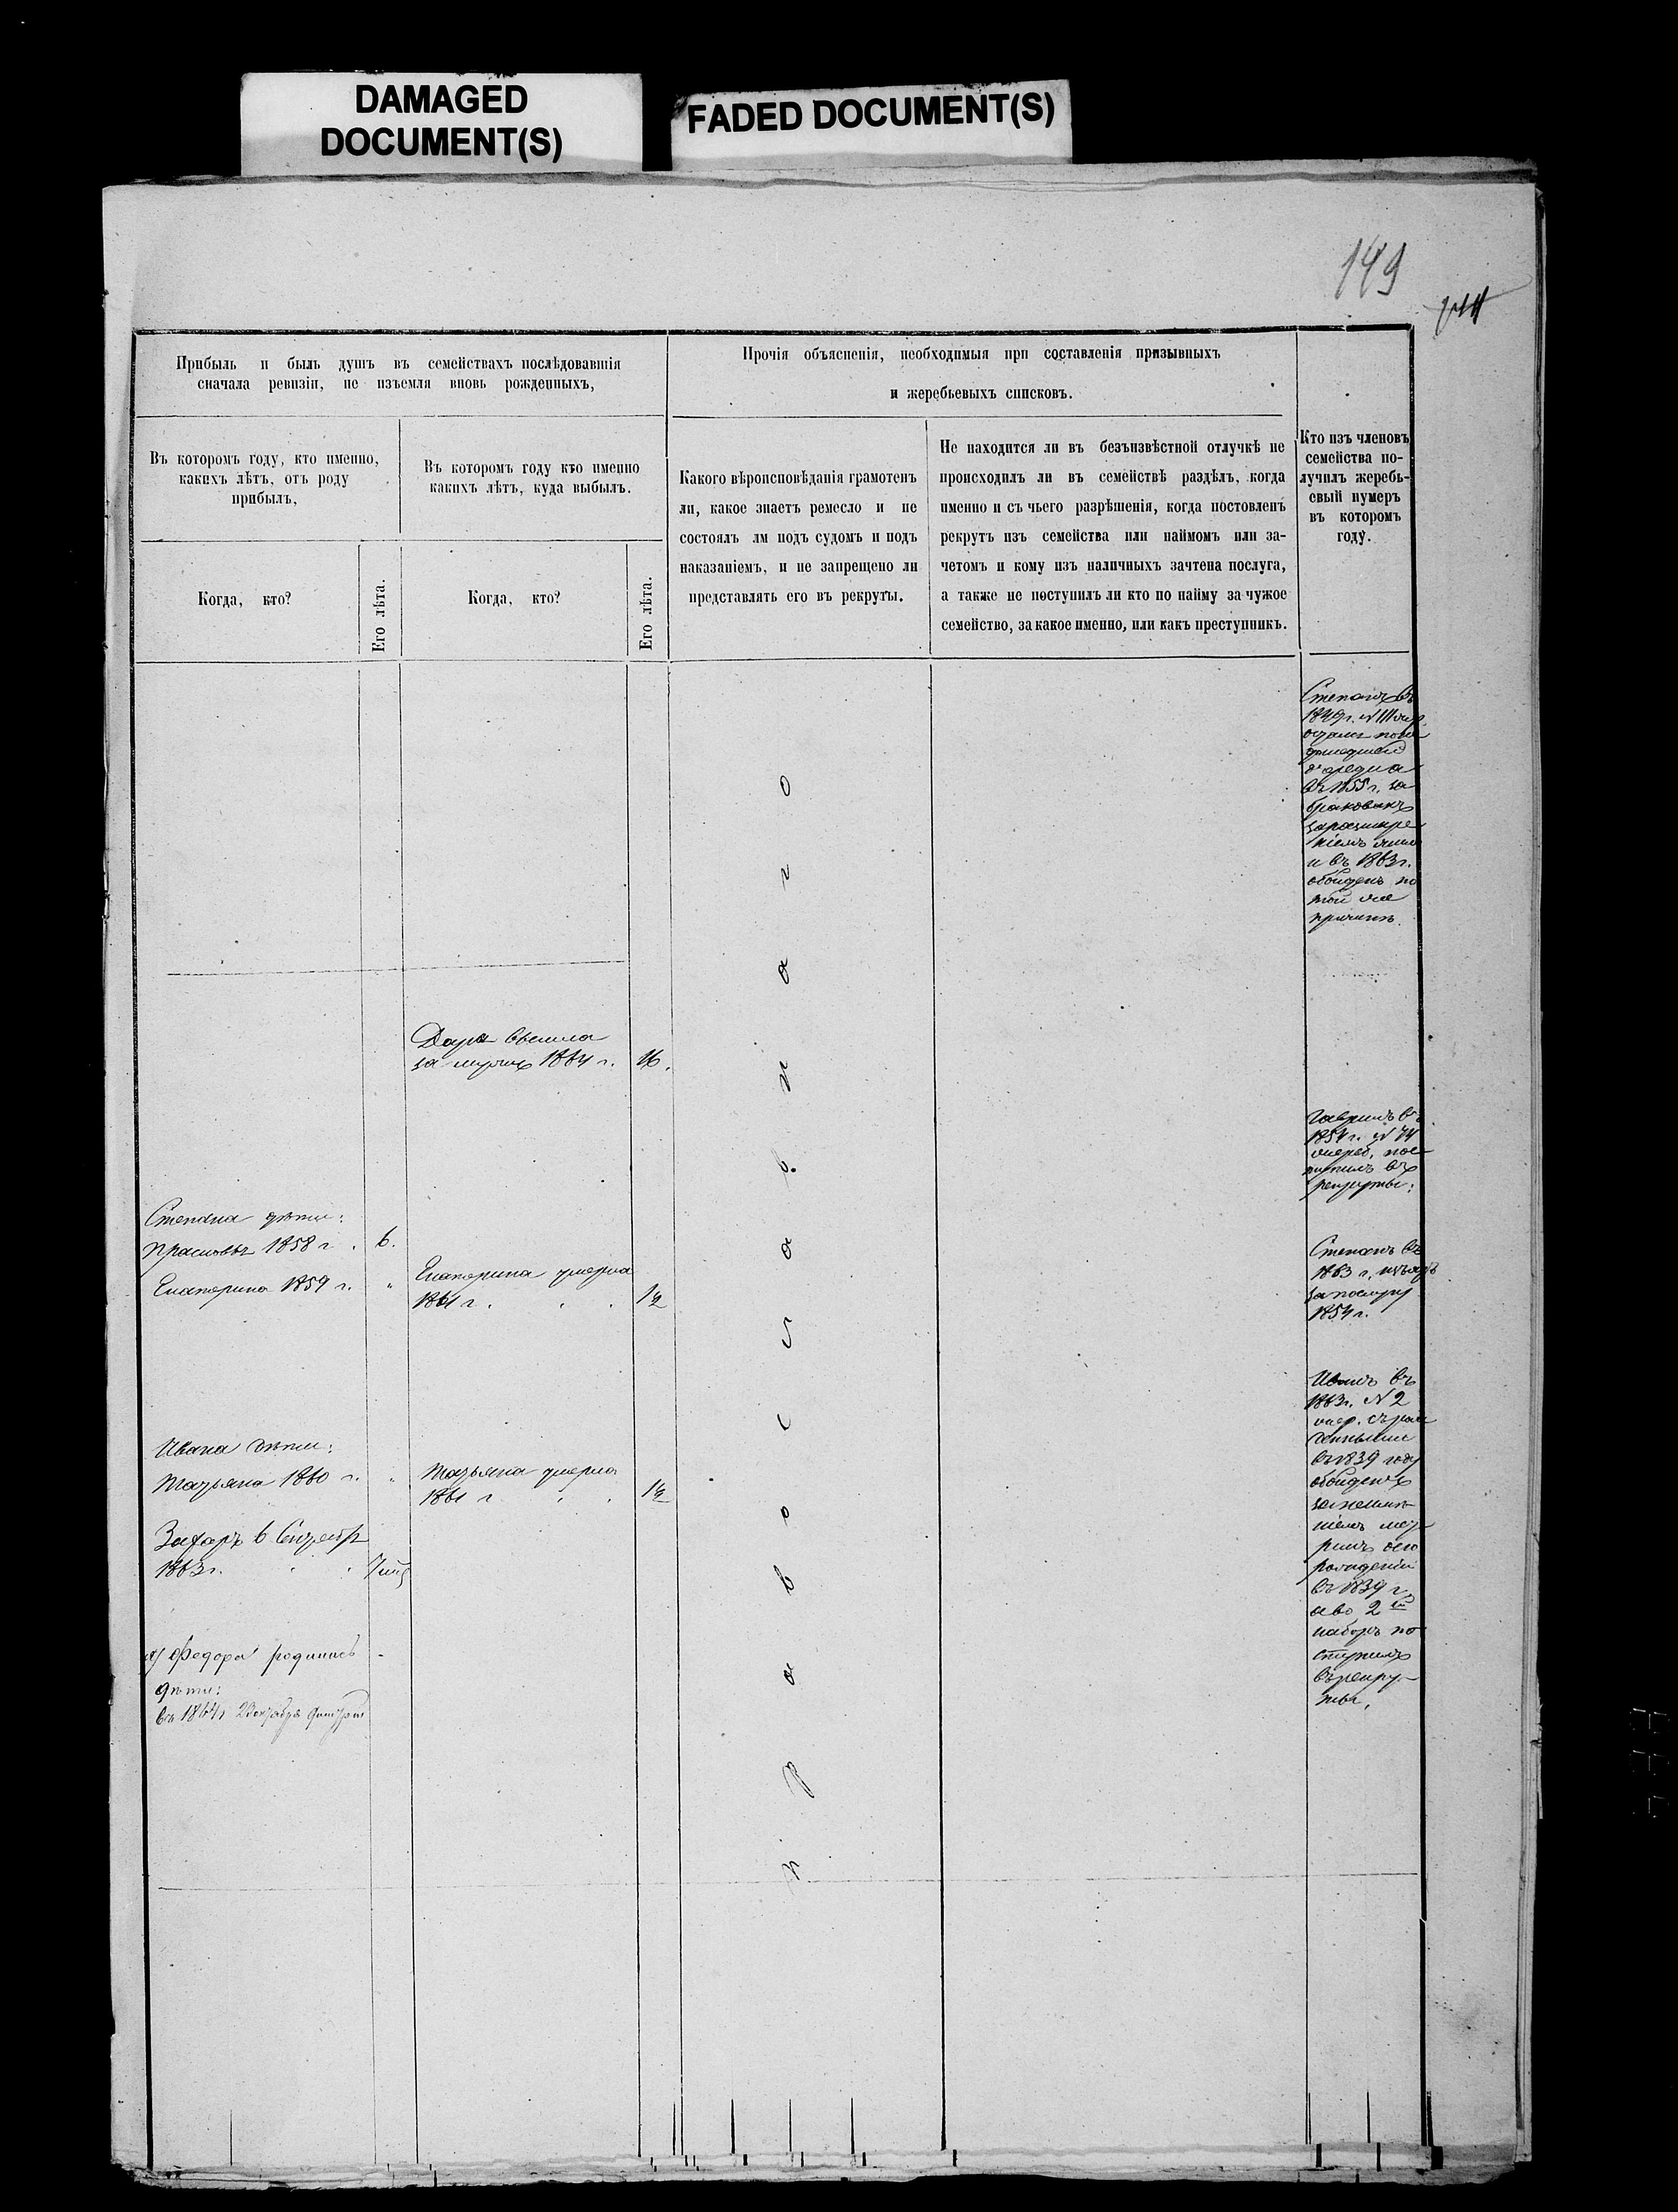 DAMAGED
DOCUMENT(S)
FADED DOCUMENT(S)
149
Прибыль и быль душъ въ семействахъ послѣдовавшія
сначала ревизіи, не изъемля вновь рожденныхъ,
Прочія объясненія, необходимыя при составленія призывныхъ
и жеребьевыхъ списковъ.
Въ которомъ году, кто именно,
какихъ лѣтъ, отъ роду
прибылъ,
Въ которомъ году кто именно
какихъ лѣтъ, куда выбылъ.
Какого вѣроисповѣданія грамотенъ
ли, какое знаетъ ремесло и не
состоялъ лм подъ судомъ и подъ
наказаніемъ, и не запрещено ли
представлять его въ рекруты.
Не находится ли въ безъизвѣстной отлучкѣ не
происходилъ ли въ семействѣ раздѣлъ, когда
именно и съ чьего разрѣшенія, когда постовленъ
рекрутъ изъ семейства или наймомъ или за-
четомъ и кому изъ наличныхъ зачтена послуга,
а также не поступилъ ли кто по найму за чужое
семейство, за какое именно, или какъ преступникъ.
Кто изъ членовъ
семейства по-
лучилъ жеребь-
евый нумеръ
въ которомъ
году.
Когда, кто?
Его лѣта.
Когда, кто?
Его лѣта.
Степанъ въ
въ 1855 г. за
бракованъ
и въ 1863 г.
обойденъ по
той же
причинѣ.
Дарья вышла
за мужъ 1864 г. 16.
Православнаго
Гаврилъ въ
1854 г. № 74
очеред. пос-
тупилъ въ
рекруты:
Степана дѣти:
Прасковья 1858 г. 6.
Екатерина 1859 г. "
Екатерина умерла
1861 г. 1½
Степанъ въ
1863 г. изъятъ
за послугу
1854 г.
Ивана дѣти:
Татьяна 1860 г. "
Татьяна умерла
1861 г. 1½
Захаръ в Сентябр
1863 г.
Иванъ въ
1863 г. № 2
въ 1839 году
обойденъ
за неимѣ-
ніемъ мет-
рикъ о его
рожденіи
въ 1839 г.
а во 2й
наборъ по-
ступилъ
въ рекру-
ты.
Федора родились
дѣти:
въ 1864 г